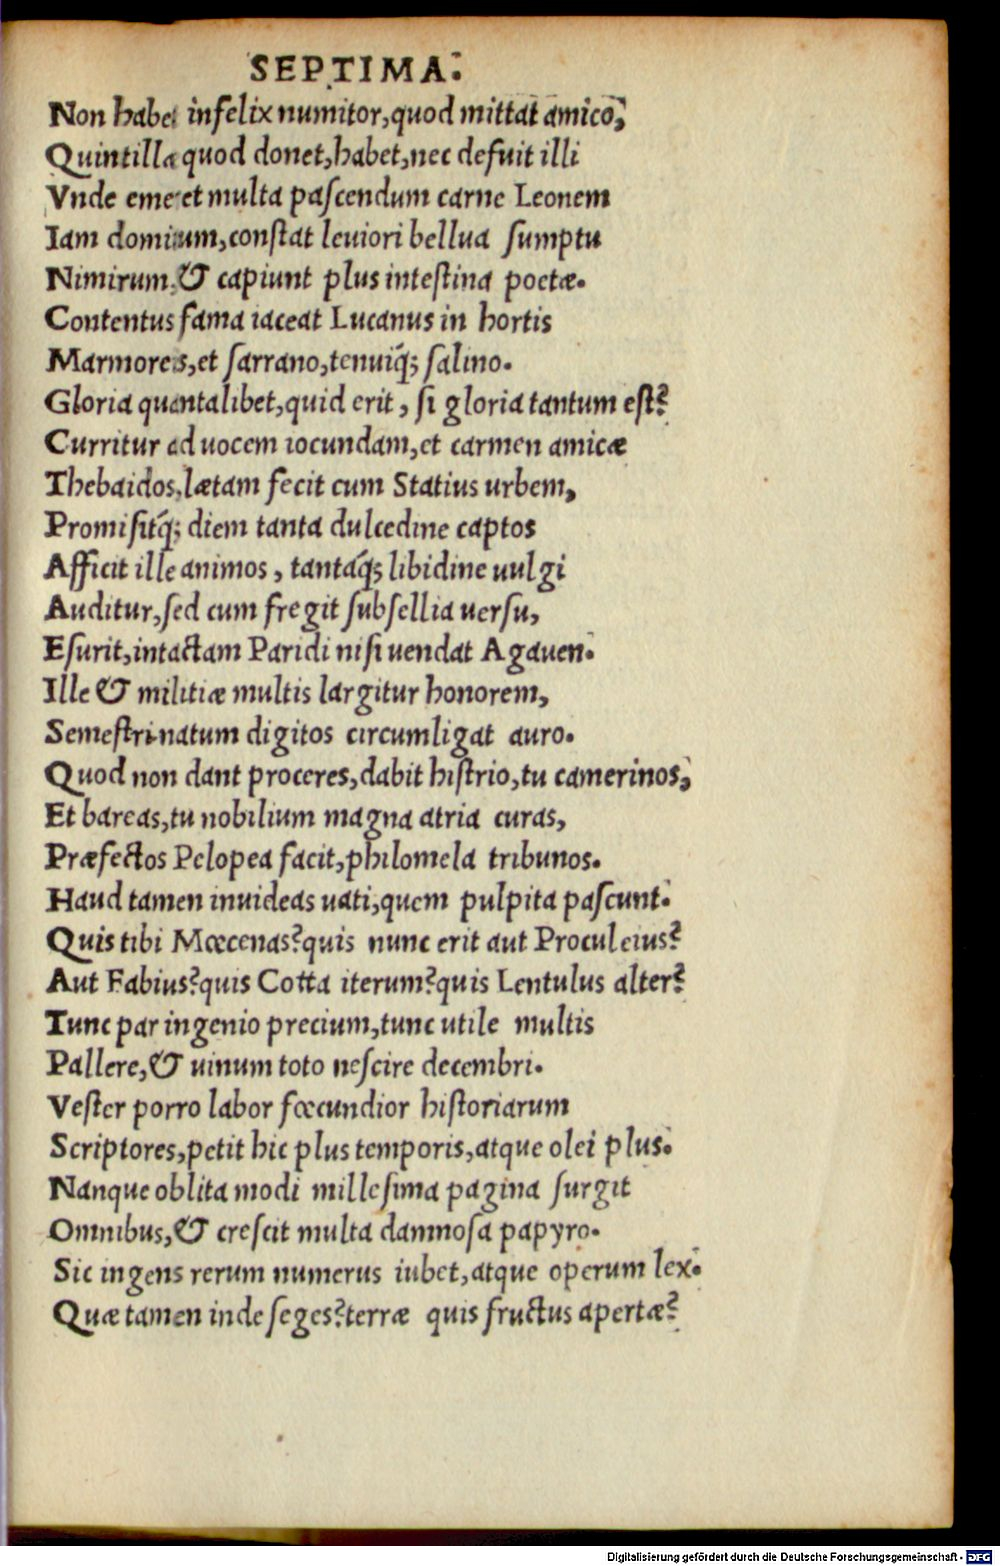 SEPTIMA.
Non habet infelix numitor,quod mittat amico,
Quintilla quod donet,habet,nec defuit illi
Vnde emeret multa pascendum carne Leonem
Iam domitum,constat leuiori bellua sumptu
Nimirum,& capiunt plus intestina poetæ.
Contentus fama iaceat Lucanus in hortis
Marmoreis,et sarrano,tenuiq́; salino.
Gloria quantalibet,quid erit, si gloria tantum est?
Curritur ad uocem iocundam,et carmen amicæ
Thebaidos,lætam fecit cum Statius urbem,
Promisitq́; diem tanta dulcedine captos
Afficit ille animos, tantaq́; libidine uulgi
Auditur,sed cum fregit subsellia uersu,
Esurit,intactam Paridi nisi uendat Agauen.
Ille & militiæ multis largitur honorem,
Semestri natum digitos circumligat auro.
Quod non dant proceres,dabit histrio,tu camerinos,
Et bareas,tu nobilium magna atria curas,
Præfectos Pelopea facit,philomela tribunos.
Haud tamen inuideas uati,quem pulpita pascunt.
Quis tibi Mœcenas?quis nunc erit aut Proculeius?
Aut Fabius?quis Cotta iterum?quis Lentulus alter?
Tunc par ingenio precium,tunc utile multis
Pallere,& uinum toto nescire decembri.
Vester porro labor fœcundior historiarum
Scriptores,petit hic plus temporis,atque olei plus.
Nanque oblita modi millesima pagina surgit
Omnibus,& crescit multa damnosa papyro.
Sic ingens rerum numerus iubet,atque operum lex.
Quæ tamen inde seges?terræ quis fructus apertæ?
Digitalisierung gefördert durch die Deutsche Forschungsgemeinschaft - DFG